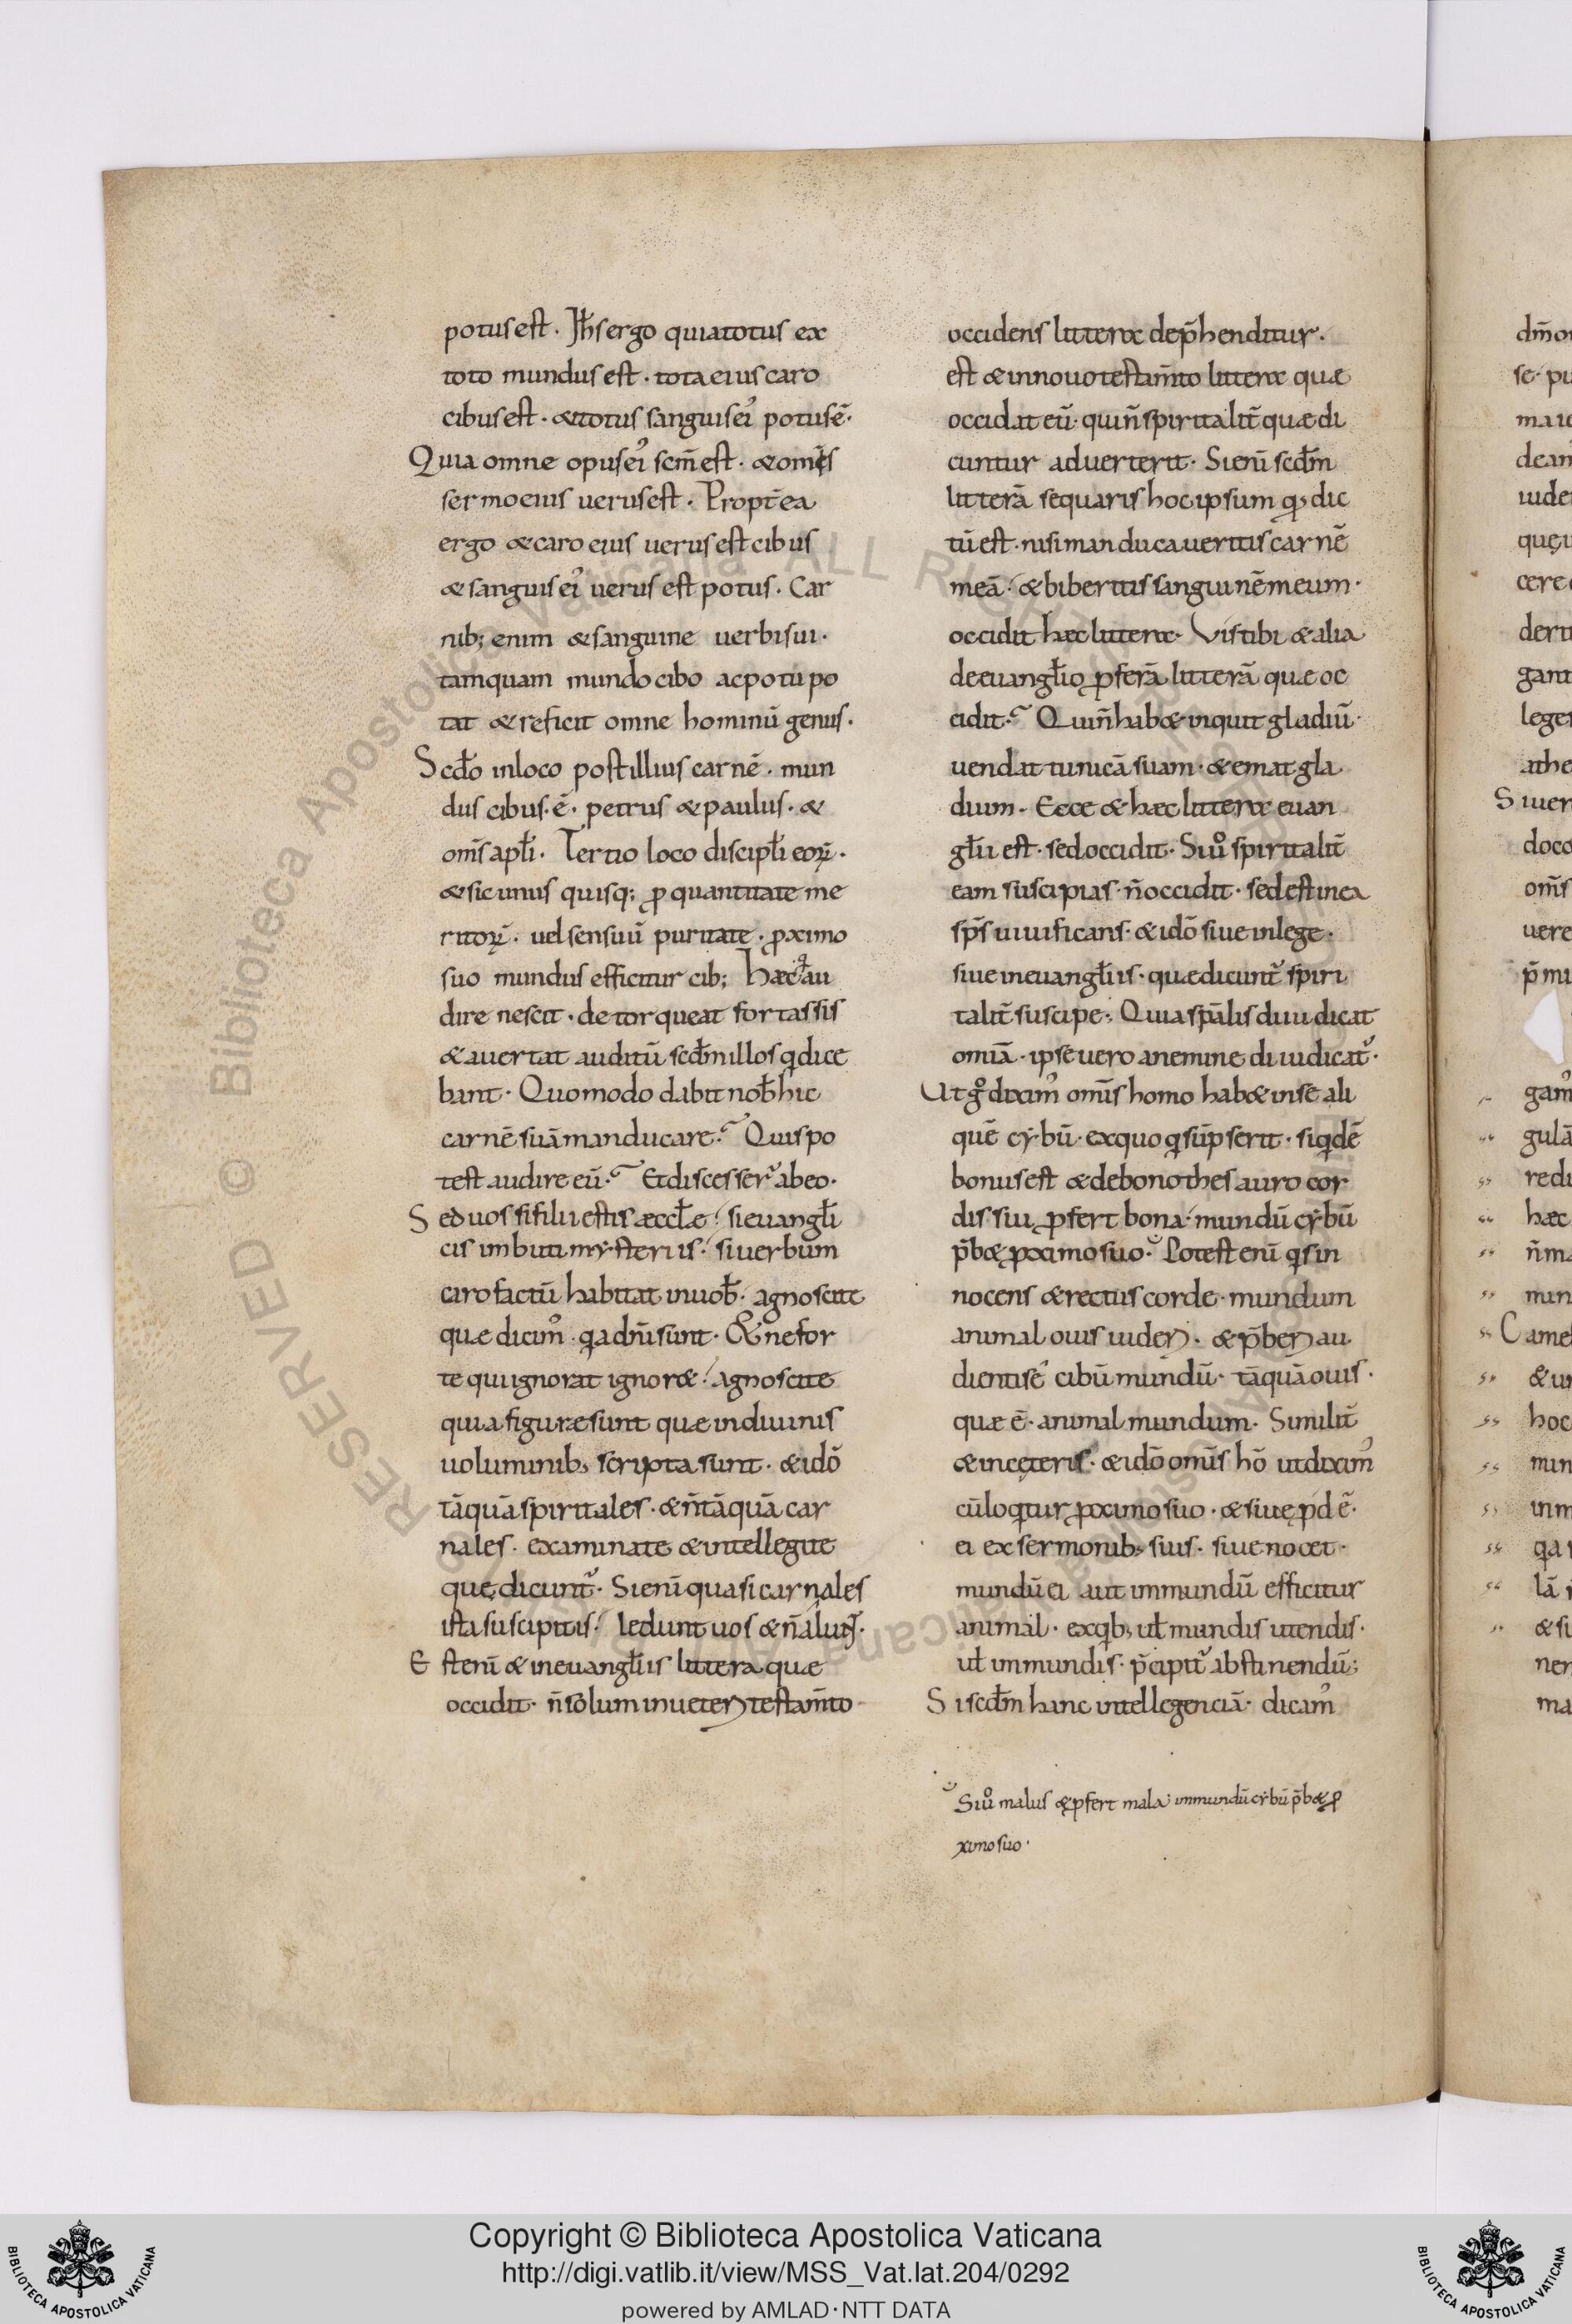 potus est. Ih̄s ergo quia totus ex
toto mundus est. tota eius caro
cibus est. & totus sanguis ei᾽ potus ē.
Quia omne opus ei᾽ sc̄m est. & om̄is
sermo eius uerus est. Propt̄ea
ergo & caro eius uerus est cibus
& sanguis ei᾽ uerus est potus. Car
nib; enim & sanguine uerbi sui.
tamquam mundo cibo ac potu po
tat & reficit omne hominū genus.
Scd̄o in loco post illius carnē. mun
dus cibus. ē. petrus & paulus. &
om̄s apłi. Tertio loco discipłi eoꝝ.
& sic unus quisq; ꝓ quantitate me
ritoꝝ. uel sensuū puritate. ꝓximo
suo mundus efficitur cib; Hæc q̇ au
dire nescit. detorqueat fortassis
& auertat auditū scd̄m illos q dice
bant. Quomodo dabit nob̄ hic
carnē suā manducare? Quis po
test audire eū? Et discesser᷑ ab eo.
Sed uos si filii estis æccłæ. si euangłi
cis imbuti mẏsteriis. si uerbum
caro factū habitat in uob̄. agnoscite
quæ dicim᾽. qa dn̄i sunt. & ne for
te qui ignorat ignor&. agnoscite
quia figuræ sunt quæ in diuinis
uoluminib; scripta sunt. & idō
tāquā spiritales. & n̄ tāquā car
nales. examinate & intellegite
quę dicunt᷑. Si enī quasi carnales
ista suscipitis. ledunt uos & n̄ alunt.
Est enī & in euangłiis littera quæ
occidit. n̄ solum in ueteri testam̄to
occidens littera dep̄henditur.
est & in nouo testam̄to littera quæ
occidat eū. qui n̄ spiritalit̄ quæ di
cuntur aduerterit. Si enī scd̄m
litterā sequaris hoc ipsum qđ dic
tū est. nisi manducaueritis carnē
meā. & biberitis sanguinē meum.
occidit hæc littera. Vis tibi & alia
de euangłio ꝓferā litterā quæ oc
cidit? Qui n̄ hab& inquit gladiū.
uendat tunicā suam. & emat gla
dium. Ecce & hæc littera euan
głii est. sed occidit. Si uͦ spiritalit̄
eam suscipias. n̄ occidit. sed est in ea
sp̄s uiuificans. & idō siue in lege.
siue in euangłiis. quæ dicunt᷑ spiri
talit̄ suscipe. Quia sp̄alis diiudicat
omīa. ipse uero a nemine diiudicat᷑.
Ut gͦ dixim᾽ om̄is homo hab& in se ali
quē cẏbū. ex quo q sūpserit. siqdē
bonus est & de bono thesauro cor
dis sui ꝓfert bona. mundū cẏbū
p̄b& ꝓximo suo. Potest enī qs in
nocens & rectus corde. mundum
animal ouis uideri. & p̄beri au
dienti se᾽ cibū mundū. tāquā ouis.
quæ ē. animal mundum. Similit̄
& in cęteris. & idō om̄is hō ut dixim᾽
cū loqtur ꝓximo suo. & siue ꝓdē.
ei ex sermonib; suis. siue nocet.
mundū ei aut immundū efficitur
animal. ex qb; uł mundis utendis.
uł immundis. p̄cipit᷑ abstinendū;
Si scd̄m hanc intellegenciā. dicam᾽
Si uͦ malus & ꝓfert mala. immundū cẏbū p̄b& ꝓ
ximo suo.
Copyright © Biblioteca Apostolica Vaticana
http://digi.vatlib.it/view/MSS_Vat.lat.204/0292
powered by AMLAD·NTT DATA
BIBLIOTECA APOSTOLICA VATICANA
BIBLIOTECA APOSTOLICA VATICANA